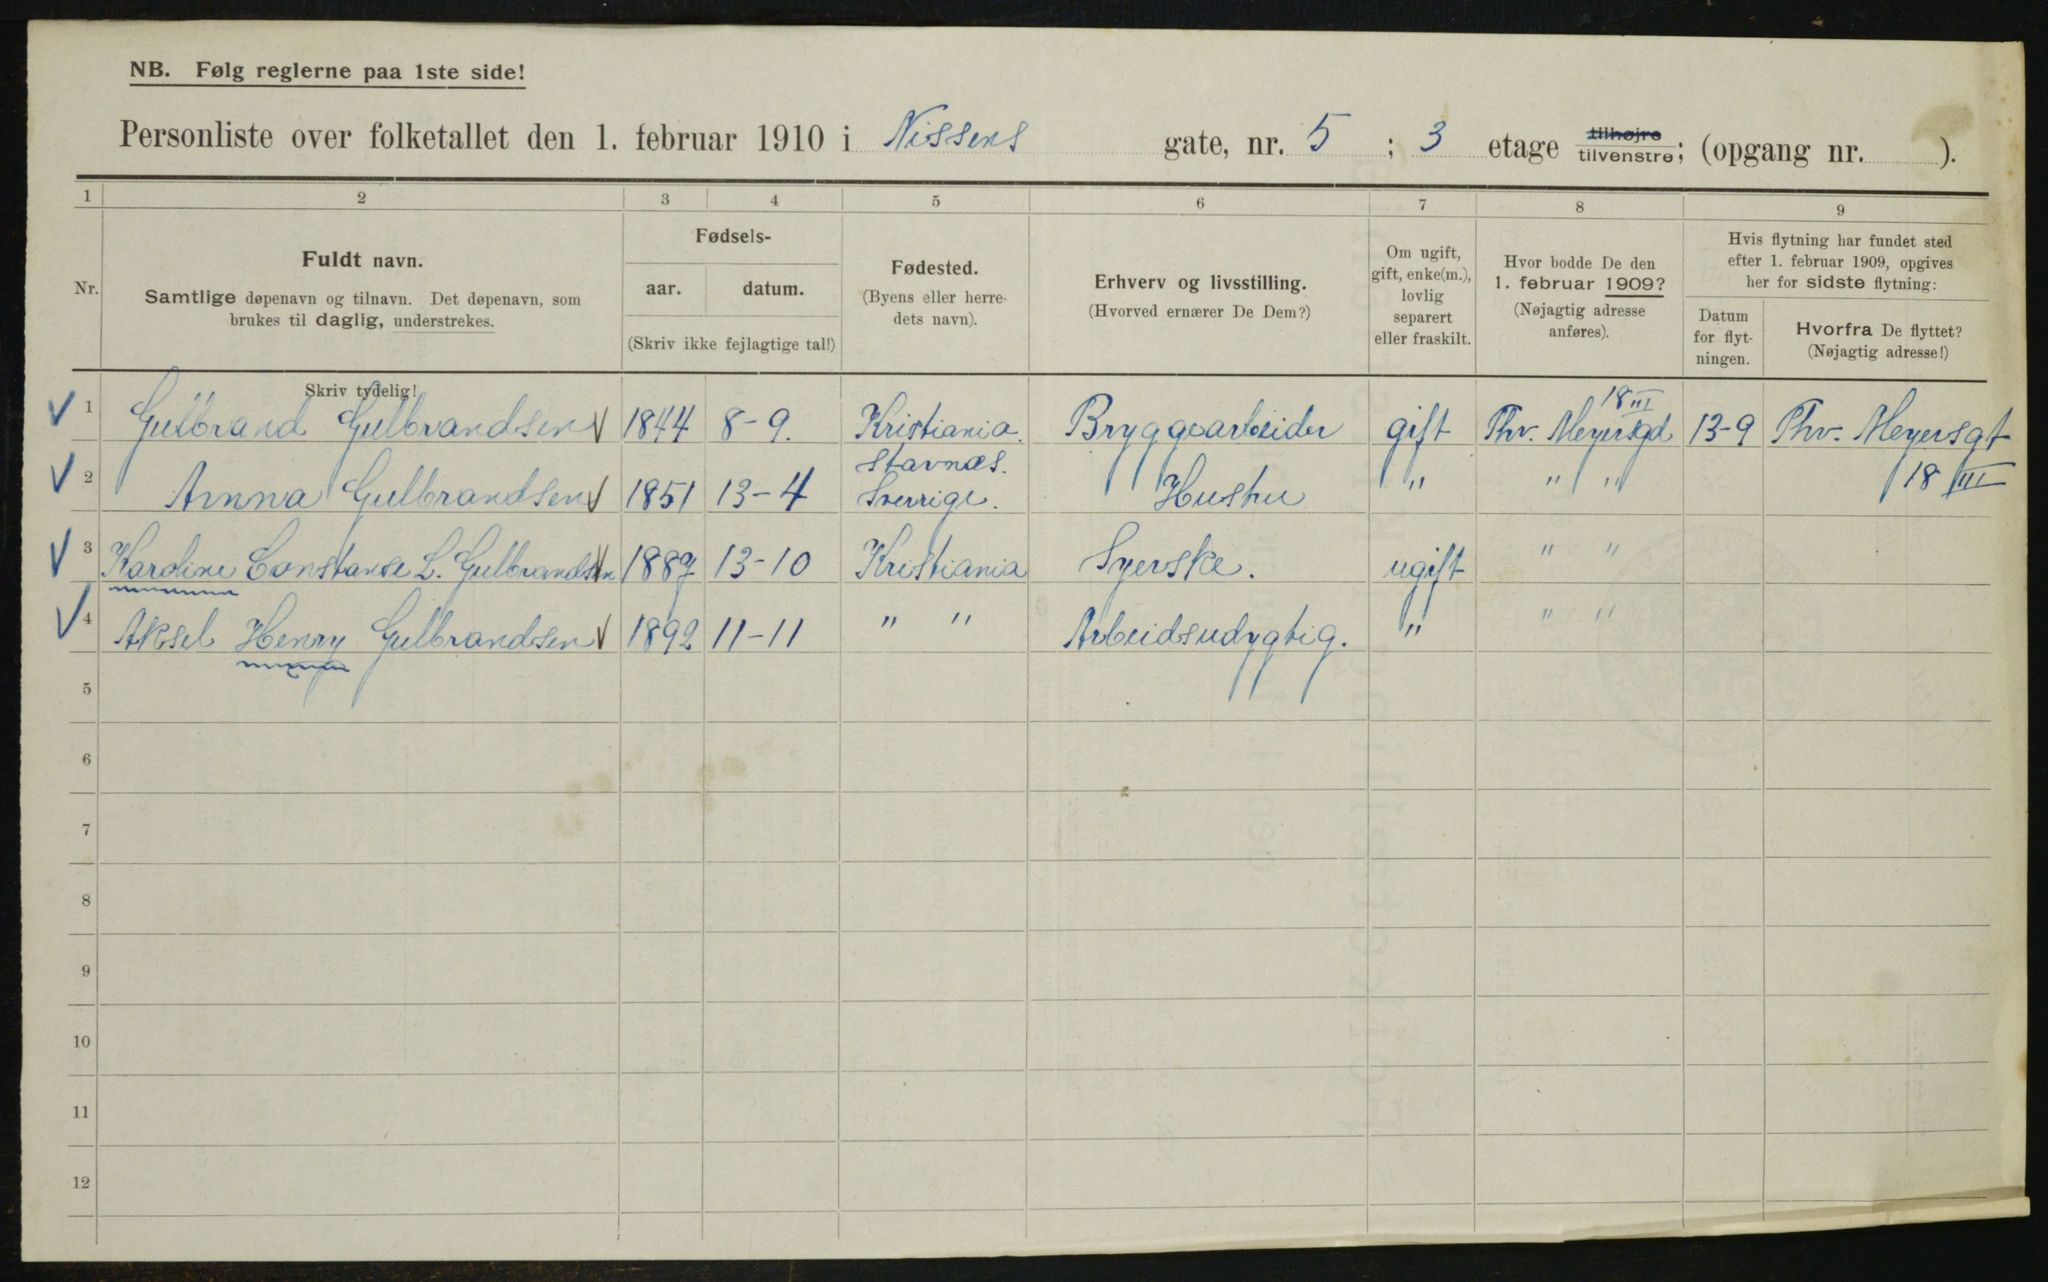 NB. Følg reglerne paa 1ste side!
Personliste over folketallet den 1. februar 1910 i Nissens gate, nr. 5 ; 3 etage tilhøjre tilvenstre; (opgang nr. ).
1 2 3 4 5 6 7 8 9
Nr.
Fuldt navn.
Samtlige døpenavn og tilnavn. Det døpenavn, som
brukes til daglig, understrekes.
Skriv tydelig!
Fødsels-
aar. datum.
(Skriv ikke fejlagtige tal!)
Fødested.
(Byens eller herre-
dets navn).
Erhverv og livsstilling.
(Hvorved ernærer De Dem?)
Om ugift,
gift, enke(m.),
lovlig
separert
eller fraskilt.
Hvor bodde De den
1. februar 1909?
(Nøjagtig adresse
anføres).
Hvis flytning har fundet sted
efter 1. februar 1909, opgives
her for sidste flytning:
Datum
for flyt-
ningen.
Hvorfra De flyttet?
(Nøjagtig adresse!)
18 III
1 Gulbrand Gulbrandsen 1844 8-9. Kristiania. Bryggearbeider gift Thv. Meyersgd 13-9 Thv. Meyersgt
Stavnæs.
2 Anna Gulbrandsen 1851 13-4 Sverrige. Hustru " " " 18 III
3 Karoline Constanse L. Gulbrandsen 1887 13-10 Kristiania Syerske. ugift " "
4 Aksel Henry Gulbrandsen 1892 11-11 " " Arbeidsudygtig. " " "
5
6
7
8
9
10
11
12